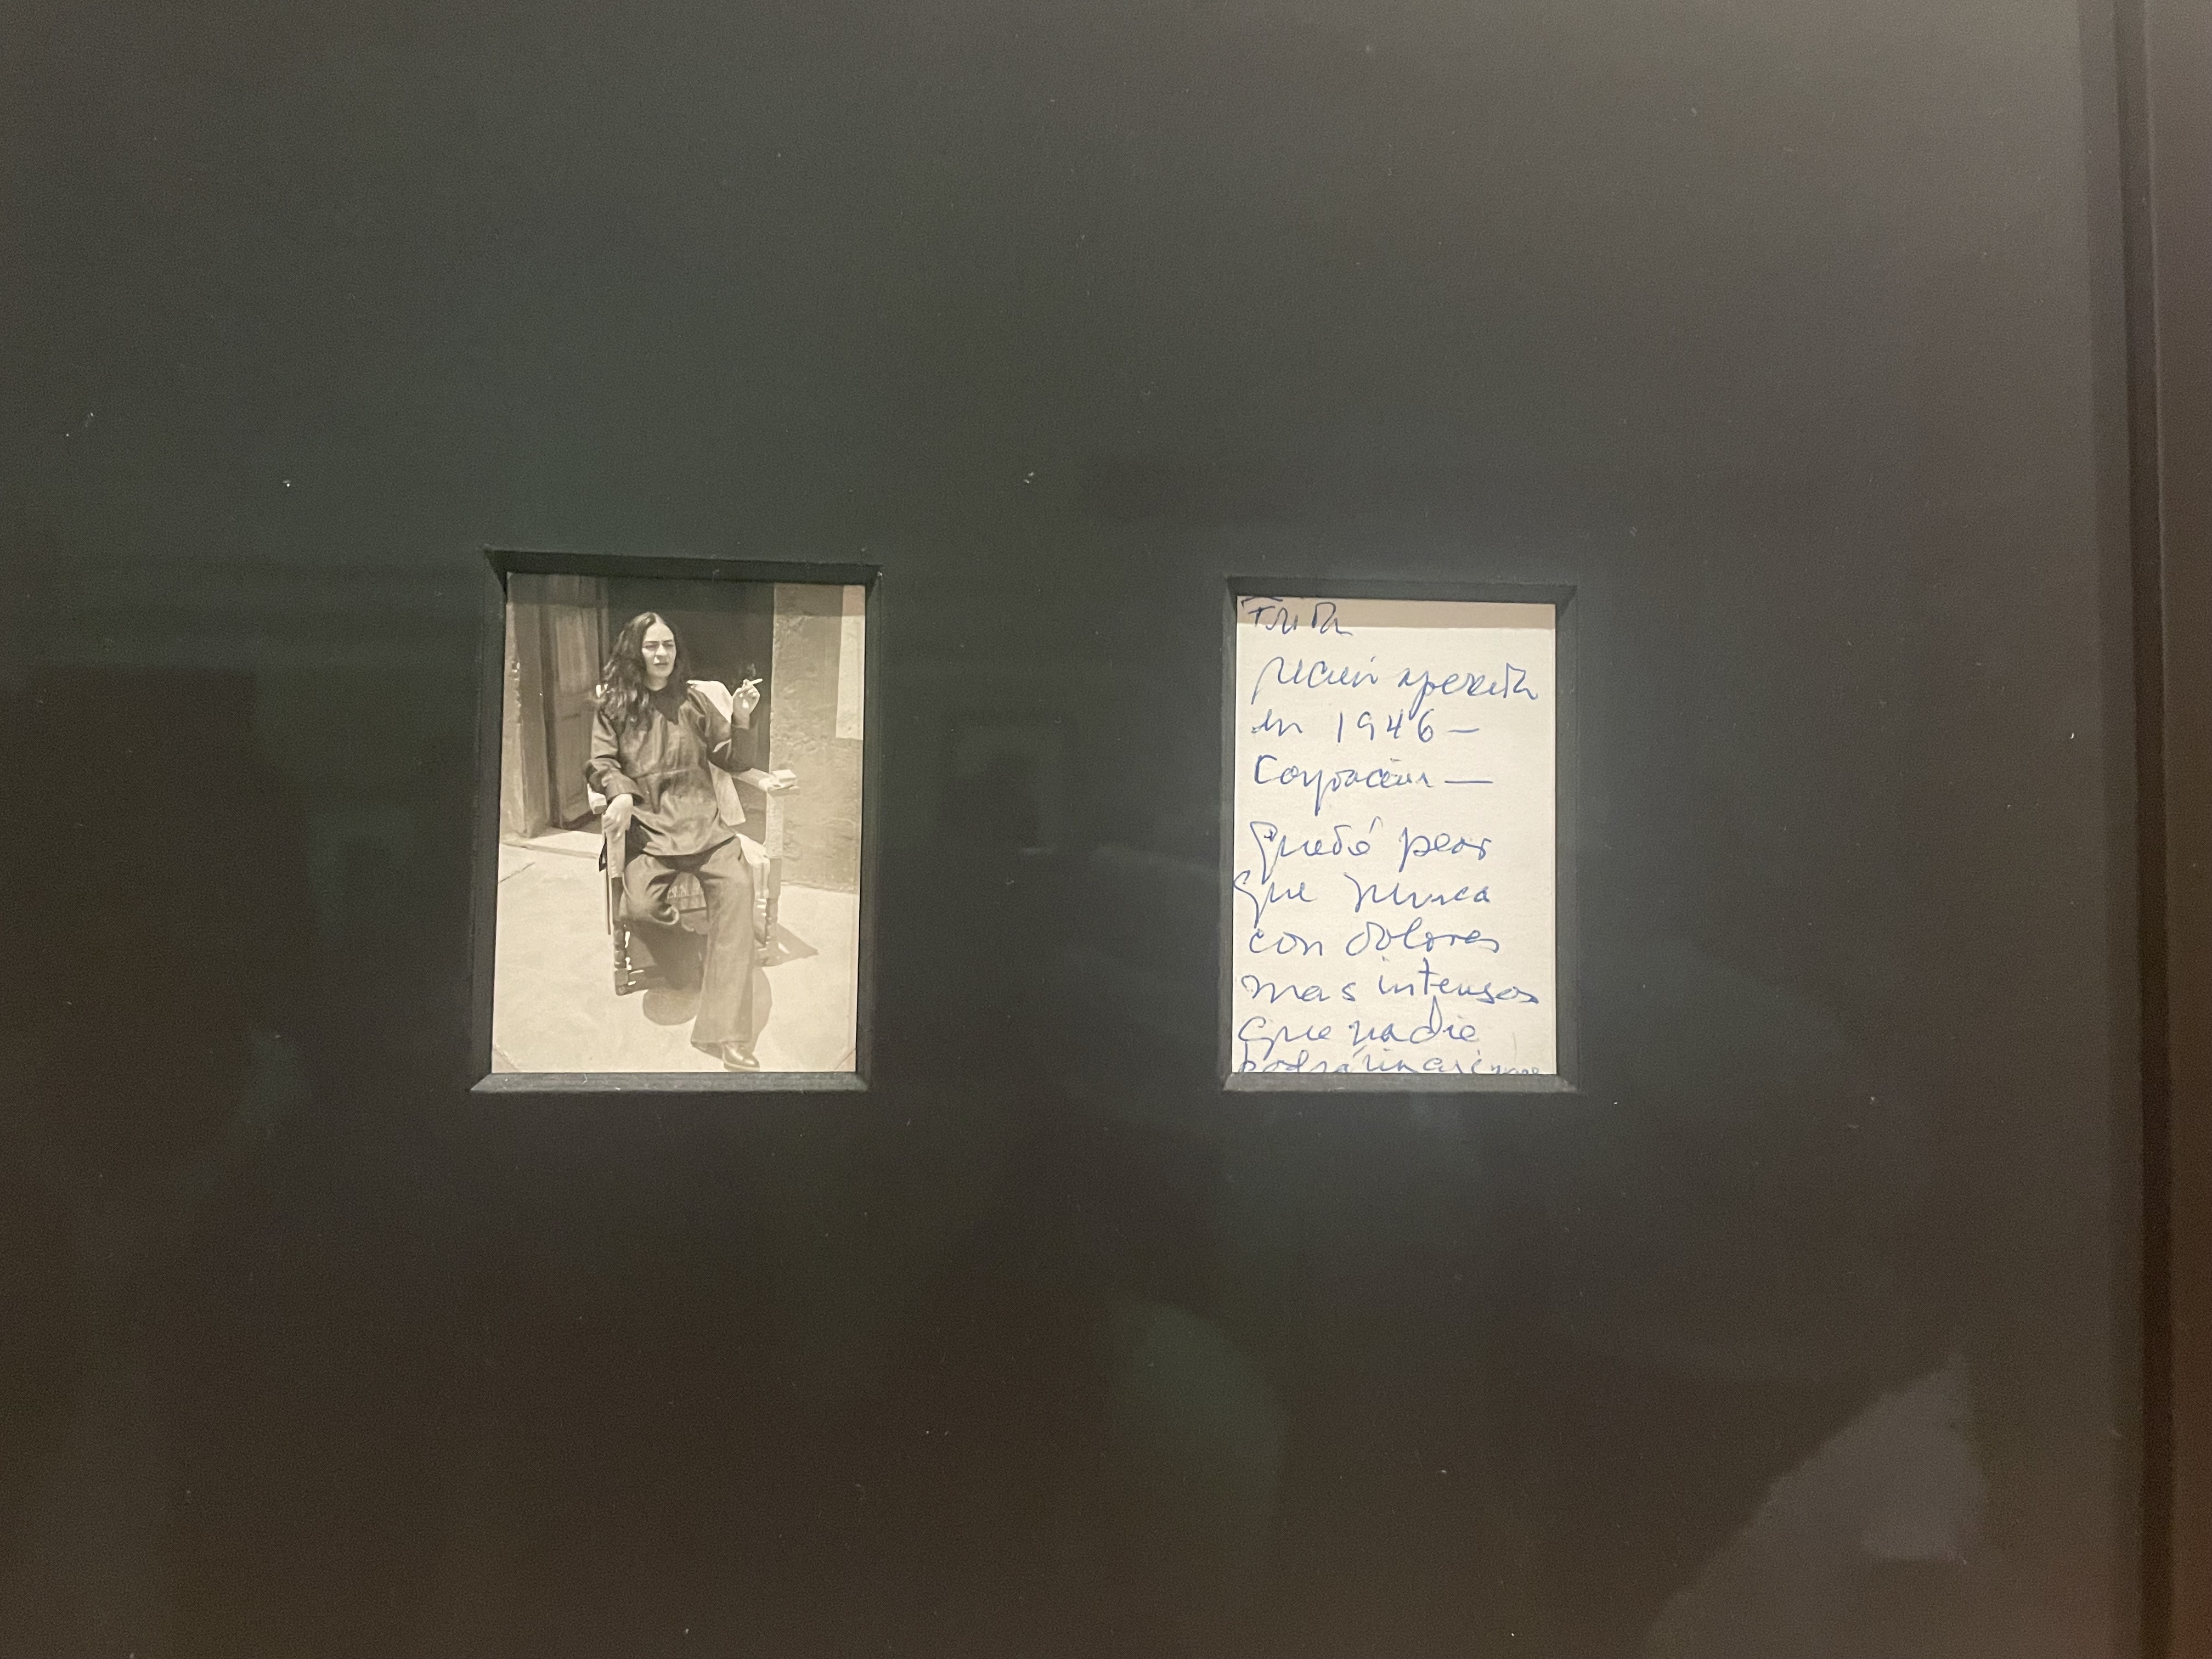 Frida
recién operada
en 1946 —
Coyoacán —
Quedó peor
que nunca
con dolores
mas intensos
que nadie
podrá imaginar